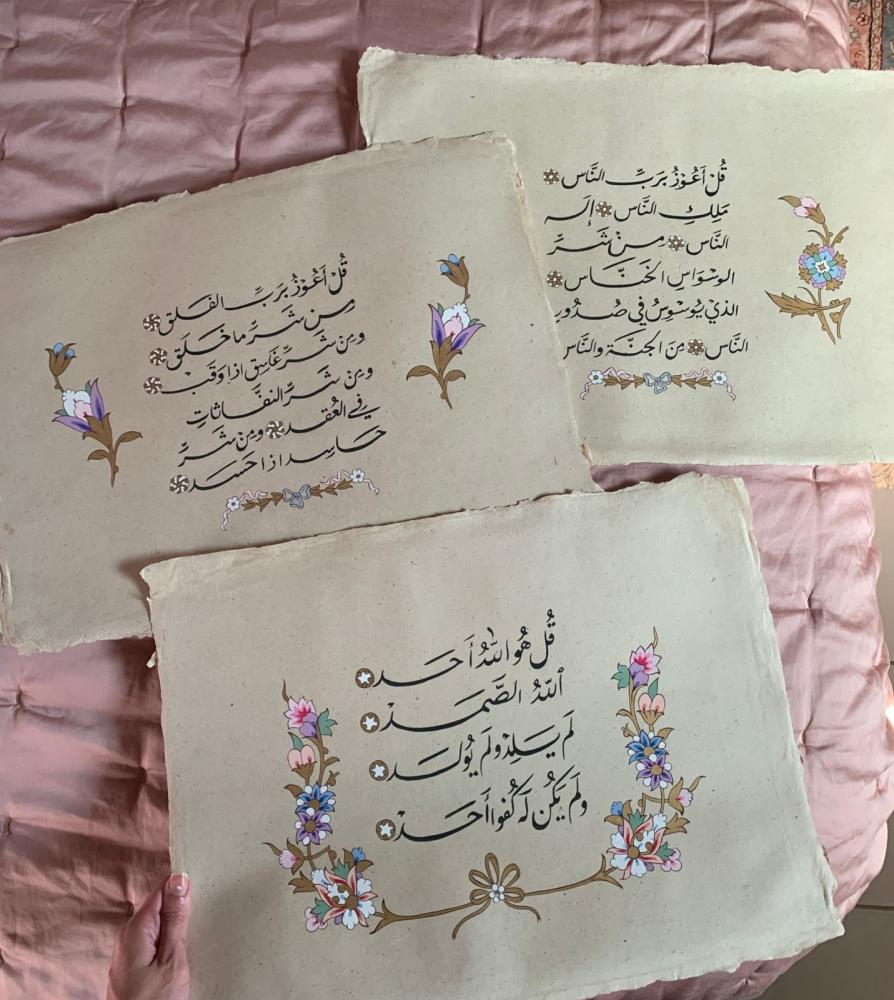 قُل أَعُوْذُ بِرَبِّ النَّاس
مَلِكِ النَّاس إِلَه
النَّاس مِن شَرِّ
الوسْوَاسِ الخَنَّاس
الذيْ يُوسْوِسُ في صُدُورِ
النَّاس مِنَ الجِنَّة والنَّاس
قُل أَعُوْذُ بِرَبِّ الفَلَق
مِن شَرِّ ما خَلَق
ومِن شَرِّ غَاسِقٍ اذا وَقَبْ
ومِنْ شَرِّ النفَّاثَاتِ
في العُقَد ومِنْ شَرِّ
حَاسِدٍ اذا حَسَدْ
قُل هُو اللّٰهُ أَحَدْ
اَللّٰهُ الصَّمَدْ
لَم يَلِدْ ولَم يُولَدْ
ولَم يَكُن لَه كُفُوا أَحَدْ